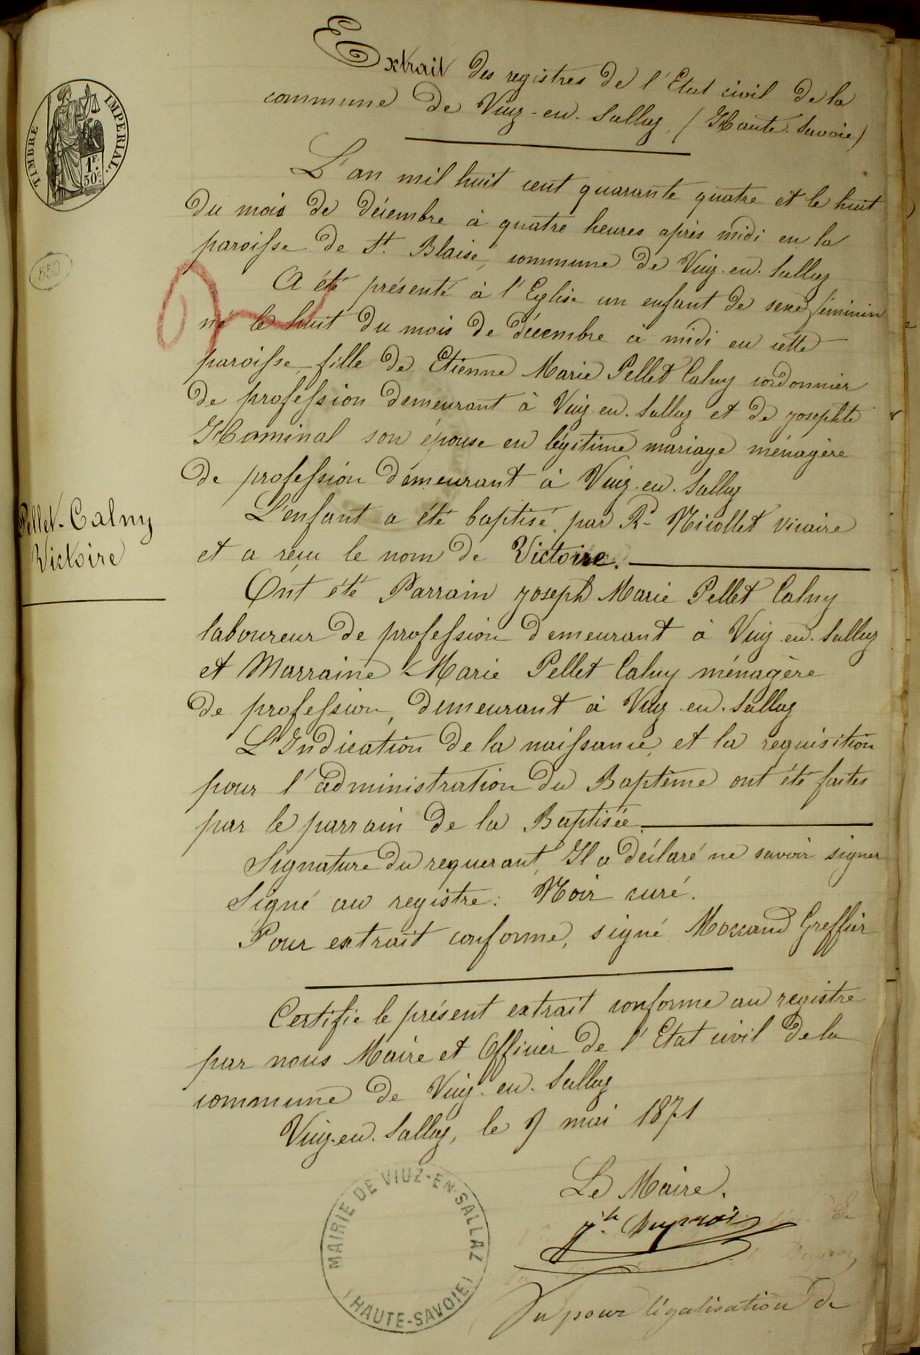 TIMBRE IMPERIAL
1F.
50c.
Extrait des registres de l'Etat civil de la
commune de Viuz-en-Sallaz, (Haute-Savoie)
L'an mil huit cent quarante quatre et le huit
du mois de décembre à quatre heures après midi en la
paroisse de St. Blaise, commune de Viuz-en-Sallaz
A été présenté à l'Eglise un enfant de sexe féminin
né le huit du mois de décembre à midi en cette
paroisse fille de Etienne Marie Pellet Calny cordonnier
de profession demeurant à Viuz-en-Sallaz et de josephte
Hominal son épouse en légitime mariage ménagère
de profession demeurant à Viuz-en-Sallaz
Pellet-Calny
Victoire
L'enfant a été baptisé par Rd Nicollet vicaire
et a reçu le nom de Victoire.
Ont été Parrain joseph Marie Pellet Calny
laboureur de profession demeurant à Viuz-en-Sallaz
et Marraine Marie Pellet Calny ménagère
de profession, demeurant à Viuz-en-Sallaz
L'Indication de la naissance, et la requisition
pour l'administration du Baptême ont été faites
par le parrain de la Baptisée.
Signature du requerant, Il a déclaré ne savoir signer
Signé au registre: Noir curé.
Pour extrait conforme, signé Moccand Greffier
Certifié le présent extrait conforme au registre
par nous Maire et Officier de l'Etat civil de la
commune de Viuz-en-Sallaz
Viuz-en-Sallaz, le 9 mai 1871
Le Maire.
MAIRIE DE VIUZ-EN-SALLAZ
(HAUTE-SAVOIE)
Vu pour légalisation de